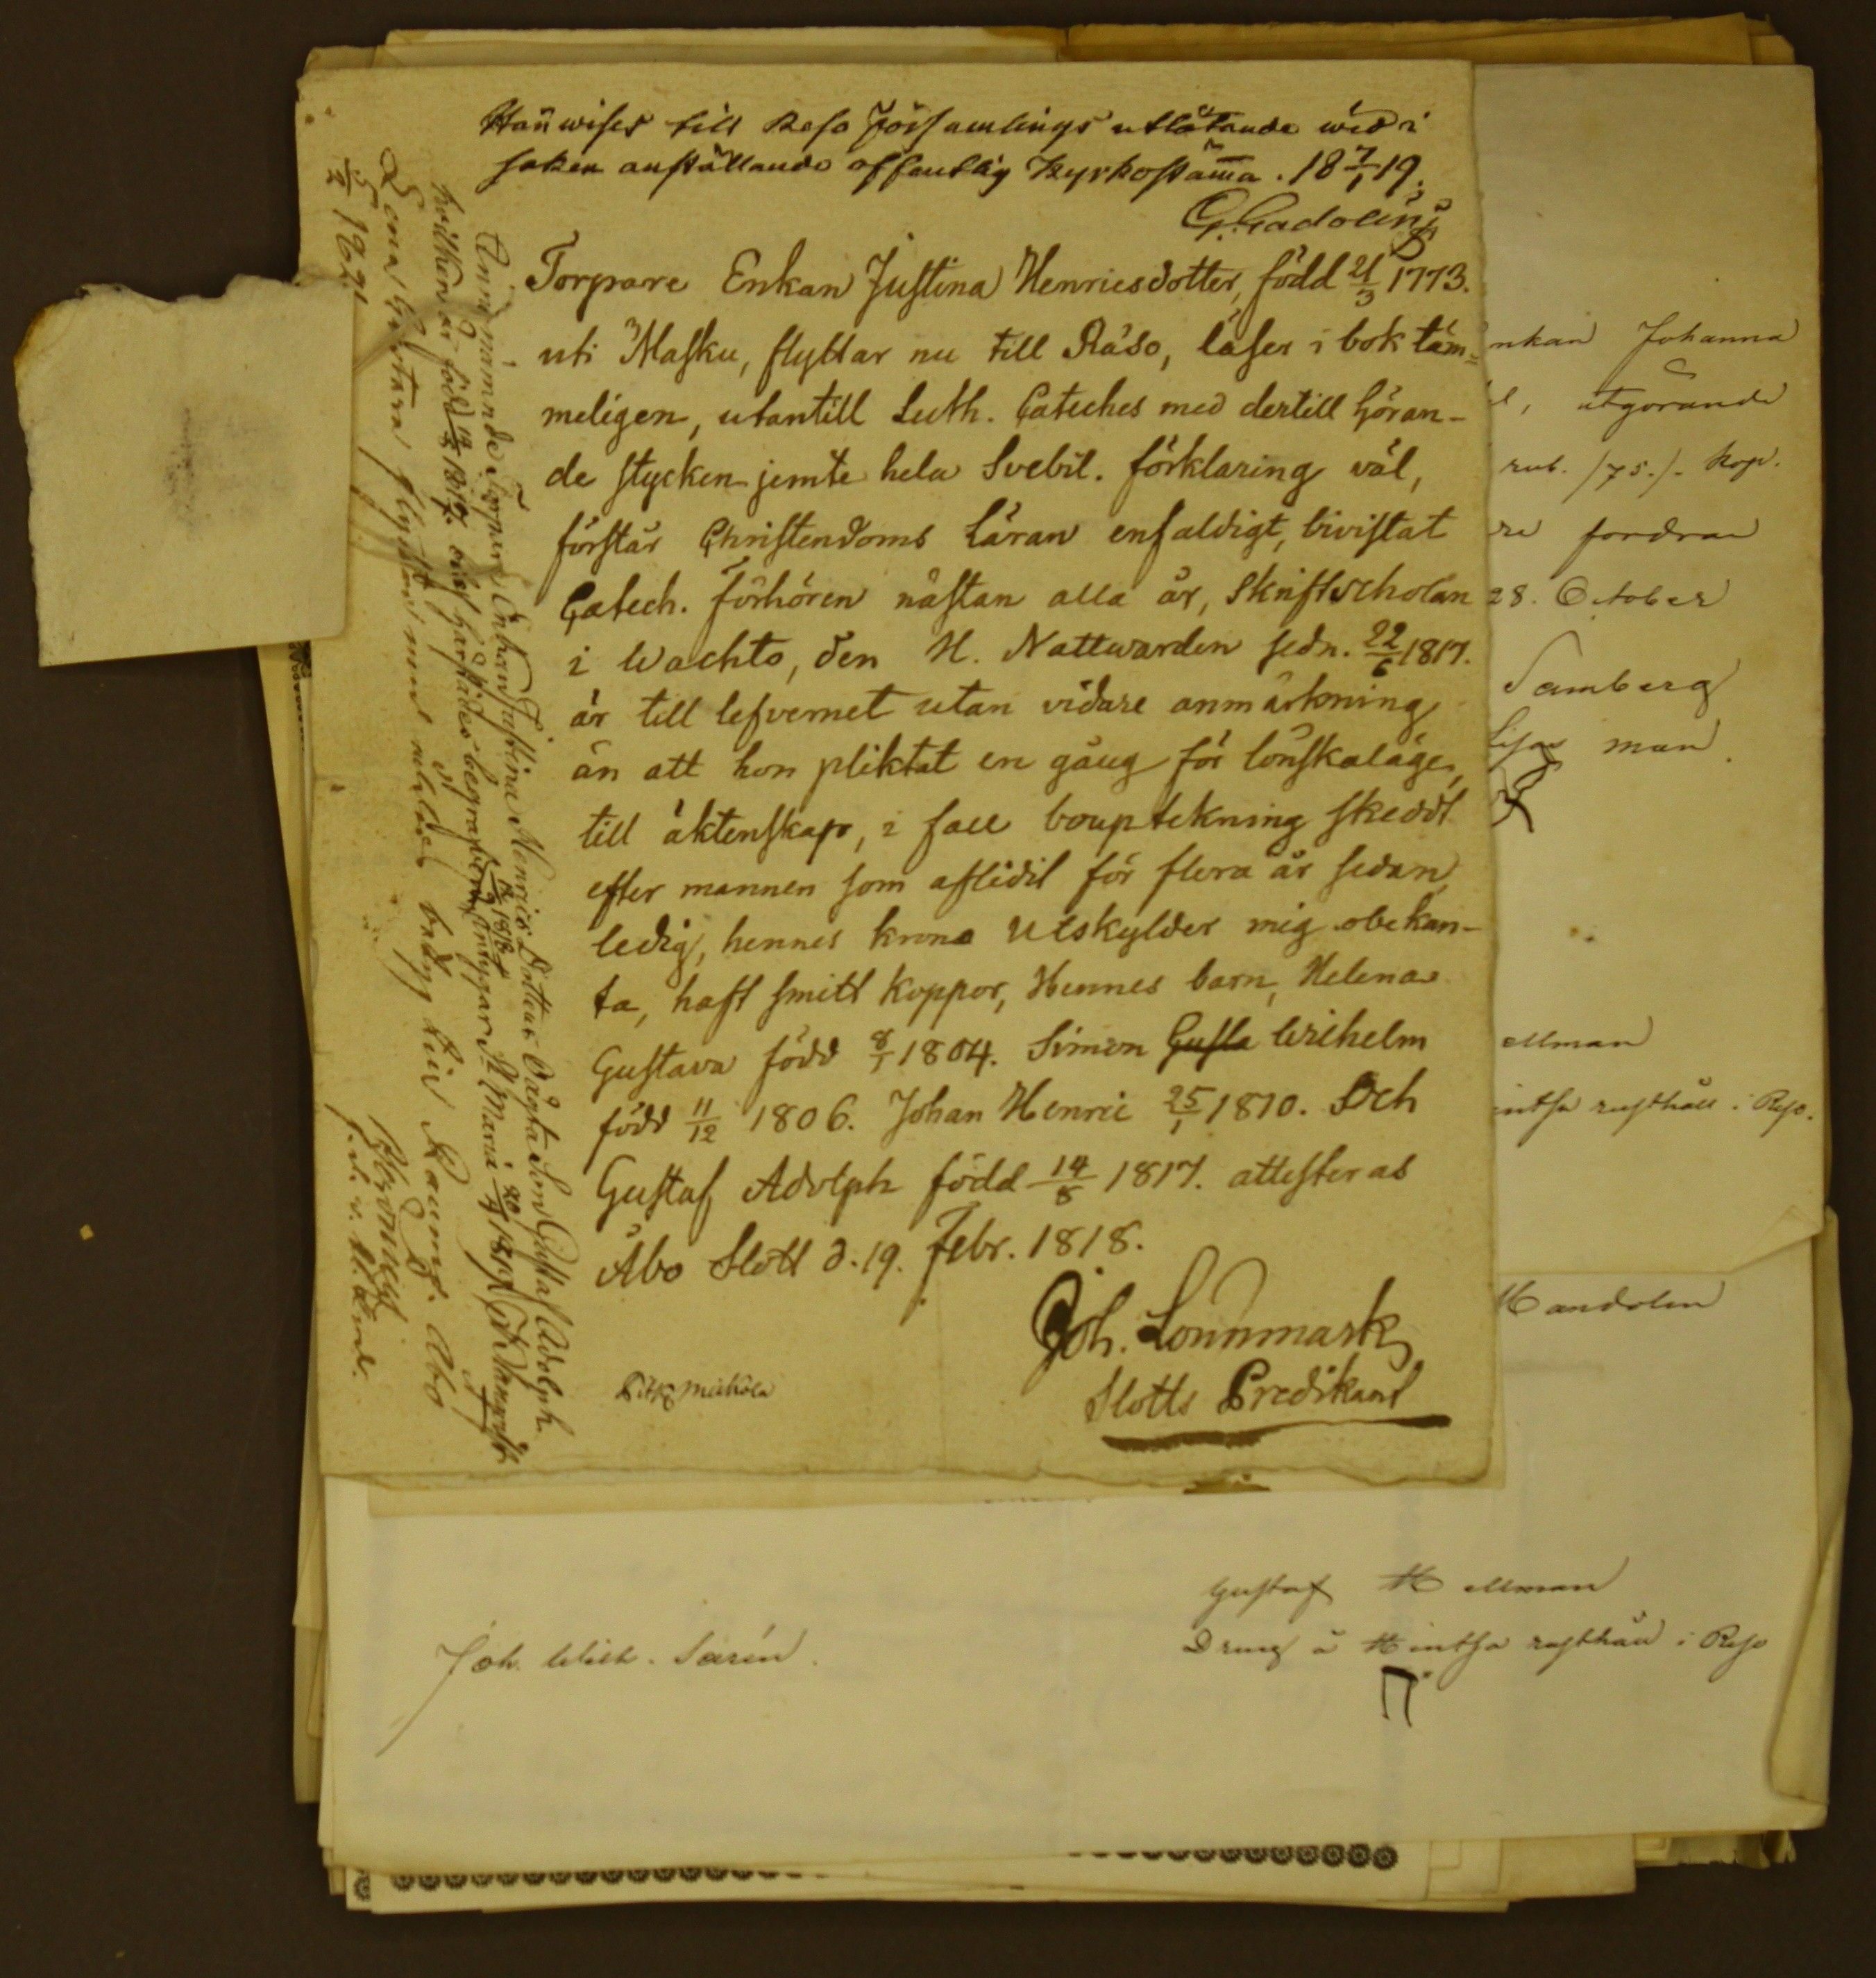 Hanwises till Reso Församlings utlåtande wid i
saken anställande offentlig Kyrkostäma. 18 7/1 19.
G. Gadolin
Torpare Enkan Justina Henricsdotter, född 21/3 1773.
uti Masku, flyttar nu till Räso, läser i bok täm=
meligen, utantill Luth. Cateches med dertill höran-
de stycken jemte hela Svebil. förklaring väl,
förstår Christendoms Läran enfaldigt, bivistat
Catech. Förhören nästan alla år, Skriftscholan
i Wachto, den H. Nattwarden sedn. 22/6 1817.
är till lefvernet utan vidare anmärkning
än att hon pliktat en gång för lönskaläge,
till äktenskap, i fall bouptekning skedt
efter mannen som aflidit för flera år sedan,
ledig, hennes krono Utskylder mig obekan-
ta, haft smitt koppor, Hennes barn, Helena
Gustava född 8/1 1804. Simon Gusta Wilhelm
född 11/12 1806. Johan Henric 25/1 1810. Och
Gustaf Adolph född 14/8 1817. attesteras
Åbo Slott d. 19. Febr. 1818.
Joh. Lönnmark
Slotts Predikant
nämnde Torpare Enkan Justina Henrics Dotters Oägta Son Gustaf Adolph
hvilken är född 14/8 1817. begrafven
Lena Gustava flyttar
5/2 1821
nkan Johanna
utgörande
rub. 75. kop.
re fordran
28. October
Samberg
man.
ellman
intsa rusthåll i Reso.
Gustaf Hellman
Dreng å Hintsa rusthåll i Reso
Joh. Wilh. Sarén.